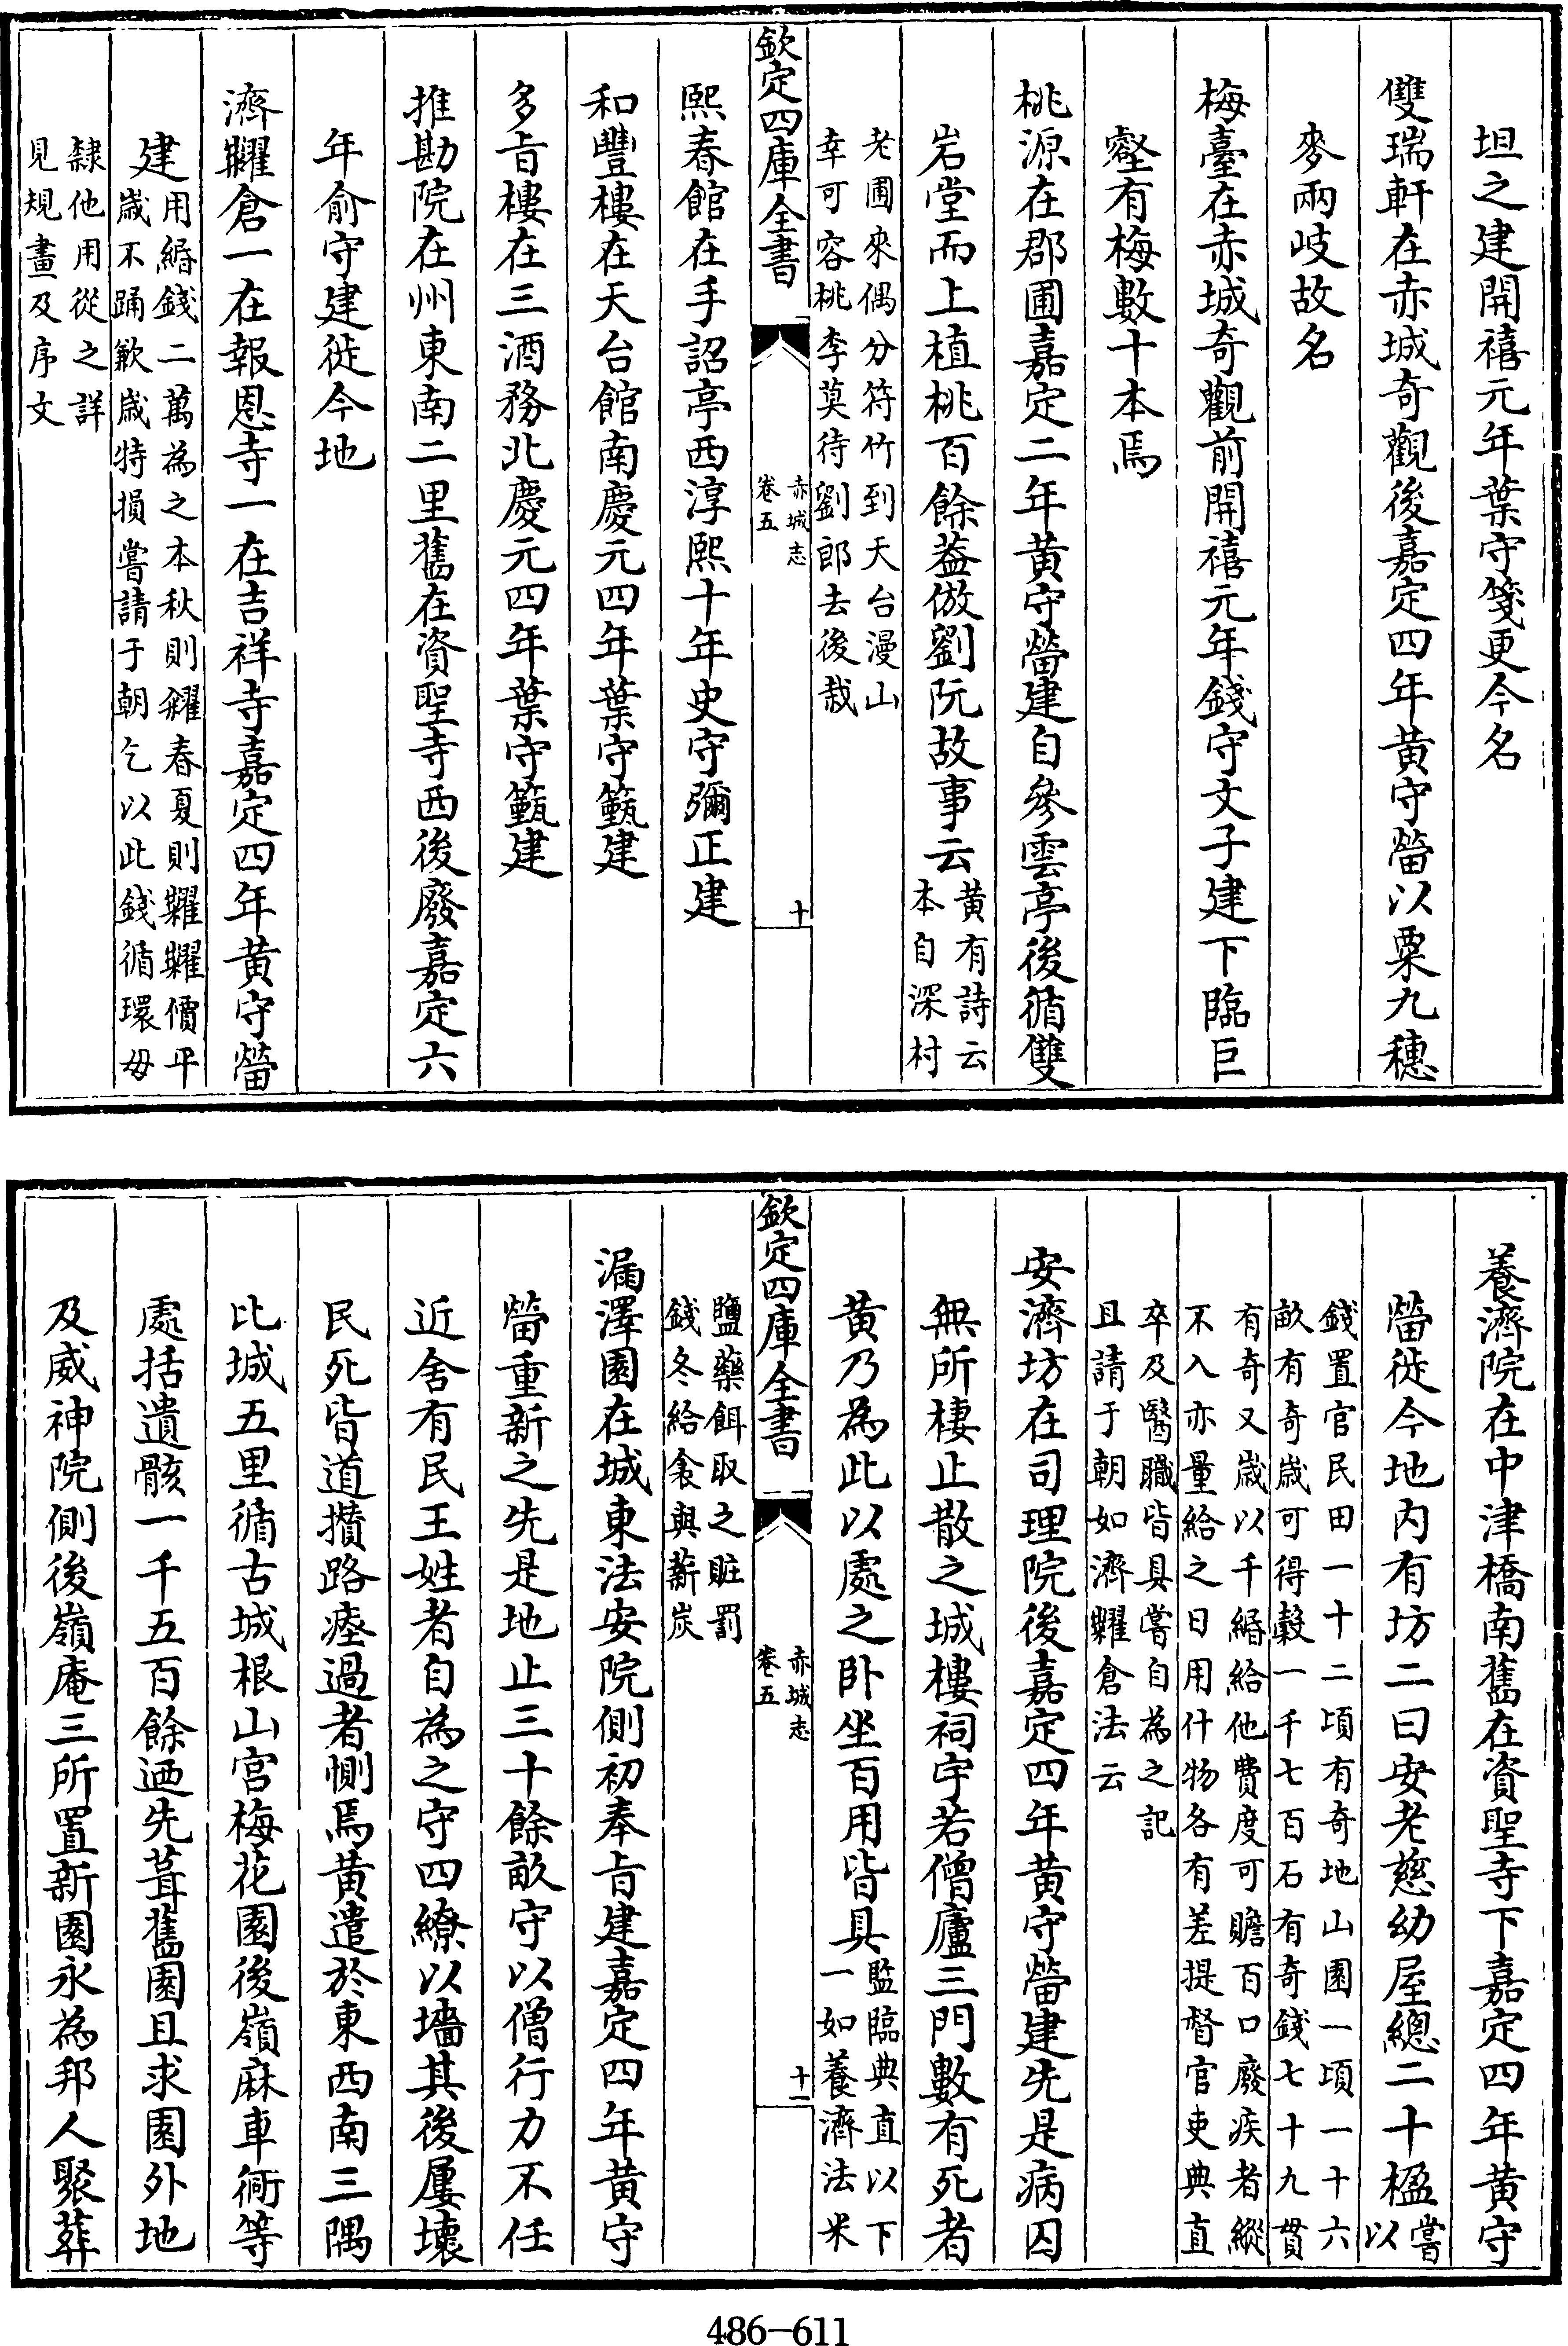 坦之建開禧元年葉守箋更今名
雙瑞軒在赤城奇觀後嘉定四年黄守𥫱以粟九穗
麥兩岐故名
梅臺在赤城奇觀前開禧元年錢守文子建下臨巨
壑有梅數十本焉
桃源在郡圃嘉定二年黄守𥫱建自參雲亭後循雙
岩堂而上植桃百餘葢倣劉阮故事云黄有詩云
本自深村
老圃來偶分符竹到天台漫山
幸可容桃李莫待劉郎去後栽
欽定四庫全書
赤城志
卷五
十
熙春館在手詔亭西淳熙十年史守彌正建
和豐樓在天台館南慶元四年葉守籈建
多㫖樓在三酒務北慶元四年葉守籈建
推勘院在州東南二里舊在資聖寺西後廢嘉定六
年俞守建徙今地
濟糶倉一在報恩寺一在吉祥寺嘉定四年黄守𥫱
建用緡錢二萬為之本秋則糴春夏則糶糶價平
歳不踊歉歳特損嘗請于朝乞以此錢循環毋
隸他用從之詳
見規畫及序文
養濟院在中津橋南舊在資聖寺下嘉定四年黄守
𥫱徙今地内有坊二曰安老慈幼屋總二十楹嘗
以
錢置官民田一十二頃有奇地山園一頃一十六
畝有奇歳可得榖一千七百石有奇錢七十九貫
有奇又歳以千緡給他費度可贍百口廢疾者縱
不入亦量給之日用什物各有差提督官吏典直
卒及醫職皆具嘗自為之記
且請于朝如濟糶倉法云
安濟坊在司理院後嘉定四年黄守𥫱建先是病囚
無所棲止散之城樓祠宇若僧廬三門數有死者
黄乃為此以處之卧坐百用皆具監臨典直以下
一如養濟法米
欽定四庫全書
赤城志
卷五
十一
鹽藥餌取之賍罰
錢冬給衾與薪炭
漏澤園在城東法安院側初奉㫖建嘉定四年黄守
𥫱重新之先是地止三十餘畝守以僧行力不任
近舍有民王姓者自為之守四繚以墻其後屢壞
民死皆道攢路瘞過者惻焉黄遣於東西南三隅
比城五里循古城根山宫梅花園後嶺麻車衕等
處括遺骸一千五百餘迺先葺舊園且求園外地
及威神院側後嶺庵三所置新園永為邦人聚葬
486-611